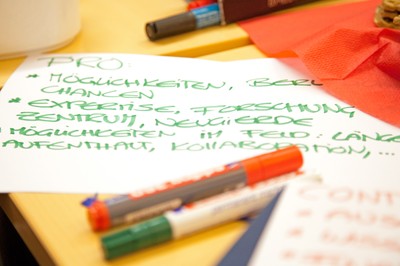 PRO:
* MÖGLICHKEITEN, BERL
CHANCEN
* EXPERTISE, FORSCHUNG
ZENTRUM, NEUGIERDE
MÖGLICHKEITEN IM FELD: LÄNGE
AUFENTHALT, KOLLABORATION, ...
CONT
* AUS